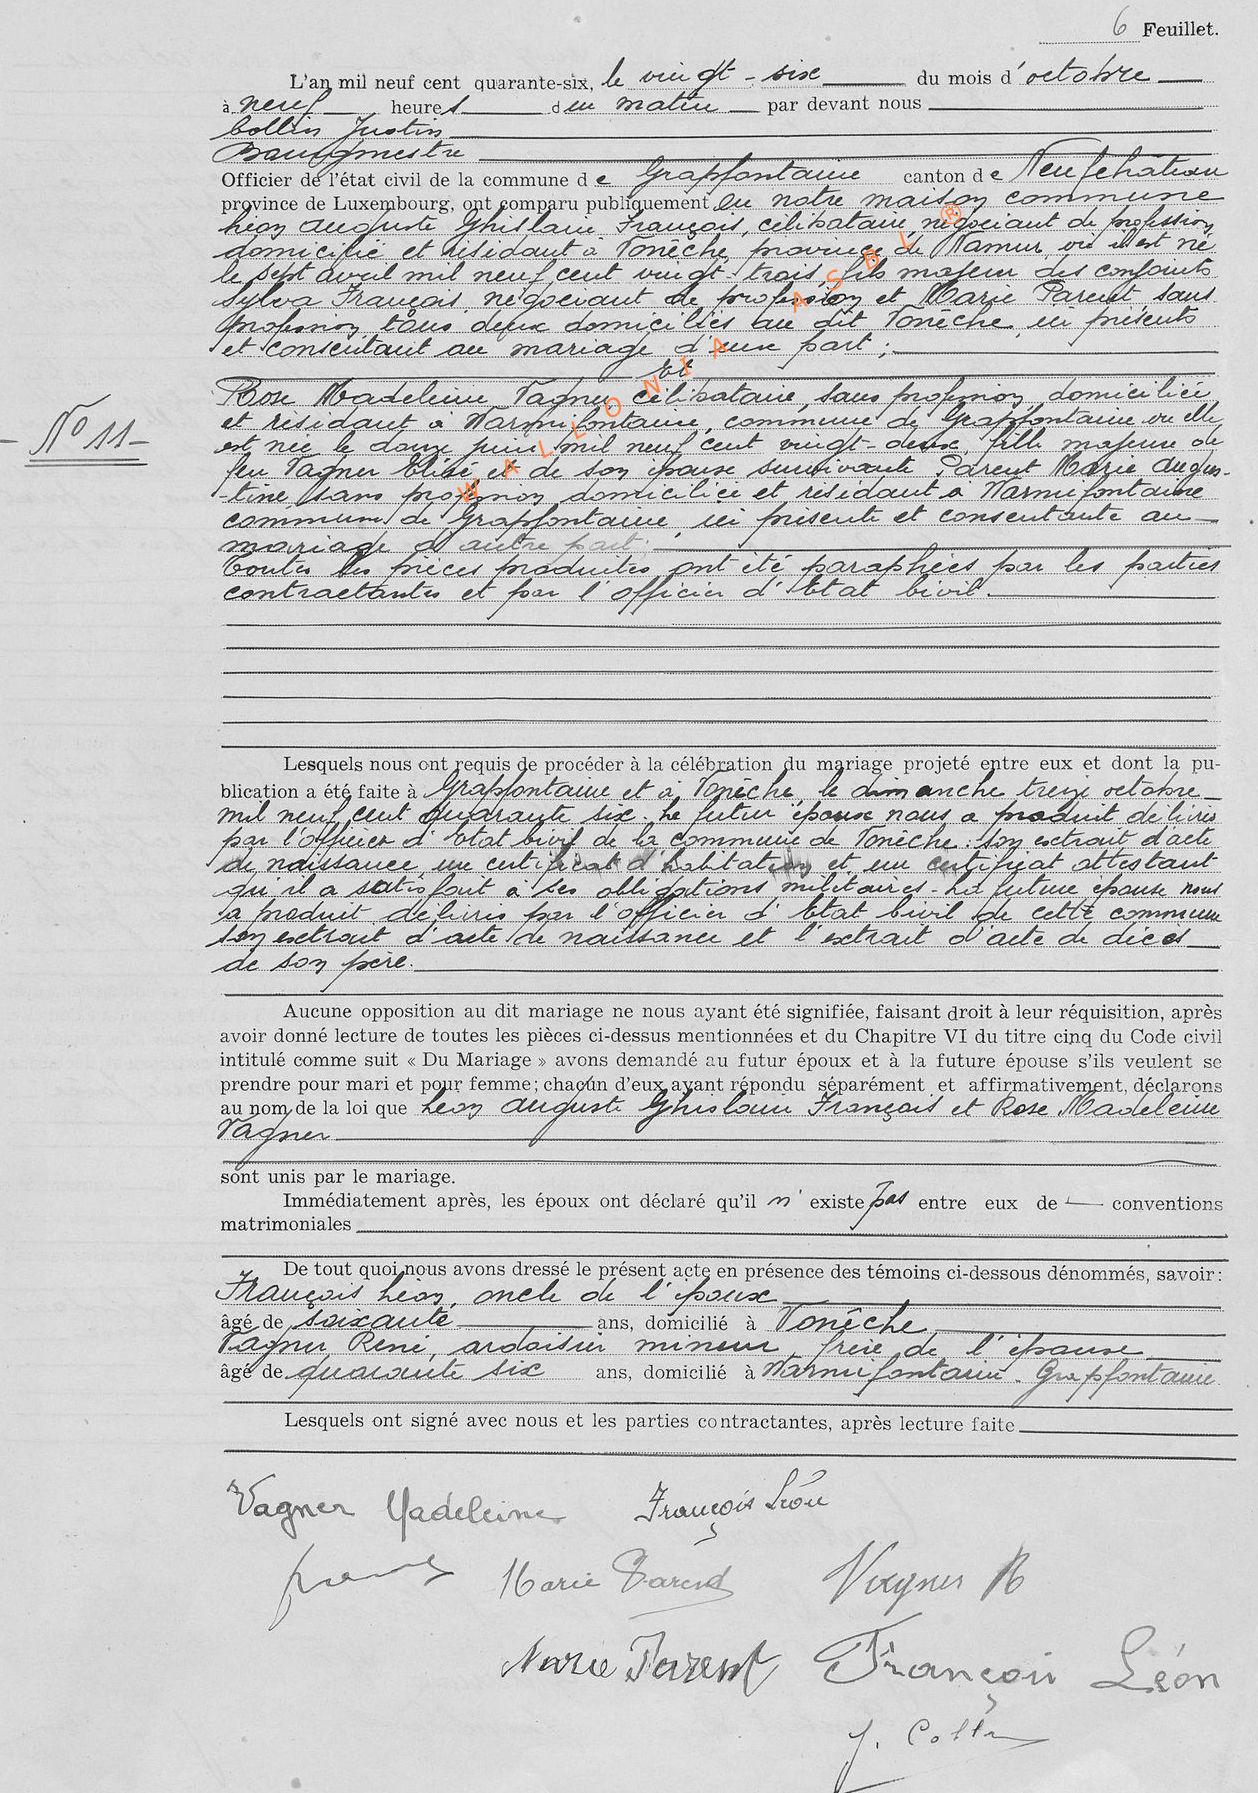 6 Feuillet.
L'an mil neuf cent quarante-six, le vingt-six du mois d'octobre
à neuf heures du matin par devant nous
Collin Justin
Bourgmestre
Officier de l'état civil de la commune de Grapfontaine canton de Neufchâteau
province de Luxembourg, ont comparu publiquement en notre maison commune
Léon Auguste Ghislain François, célibataire, négociant de profession,
domicilié et résidant à Vonêche, province de Namur, où il est né
le sept avril mil neuf cent vingt-trois, fils majeur des conjoints
Sylva François, négociant de profession et Marie Parent sans
profession, tous deux domiciliés au dit Vonêche, ici présents
et consentant au mariage d'une part;
Et
Rose Madeleine Vagner, célibataire, sans profession, domiciliée
et résidant à Warmifontaine, commune de Grapfontaine où elle
est née le douze juin mil neuf cent vingt-deux, fille majeure de
feu Vagner Elisé et de son épouse survivante Parent Marie Augus-
-tine sans profession, domiciliée et résidant à Warmifontaine
commune de Grapfontaine, ici présente et consentante au
mariage d'autre part.
N° 11
Toutes les pièces produites ont été paraphées par les parties
contractantes et par l'officier d'Etat Civil.
Lesquels nous ont requis de procéder à la célébration du mariage projeté entre eux et dont la pu-
blication a été faite à Grapfontaine et à Vonêche, le dimanche treize octobre
mil neuf cent quarante six. Le futur époux nous a produit délivrés
par l'officier d'Etat Civil de la commune de Vonêche: son extrait d'acte
de naissance, un certificat d'habitation et un certificat attestant
qu'il a satisfait à ses obligations militaires. La future épouse nous
a produit délivrés par l'officier d'Etat Civil de cette commune
son extrait d'acte de naissance et l'extrait d'acte de décès
de son père.
Aucune opposition au dit mariage ne nous ayant été signifiée, faisant droit à leur réquisition, après
avoir donné lecture de toutes les pièces ci-dessus mentionnées et du Chapitre VI du titre cinq du Code civil
intitulé comme suit « Du Mariage » avons demandé au futur époux et à la future épouse s'ils veulent se
prendre pour mari et pour femme; chacun d'eux ayant répondu séparément et affirmativement, déclarons
au nom de la loi que Léon Auguste Ghislain François et Rose Madeleine
Vagner
sont unis par le mariage.
Immédiatement après, les époux ont déclaré qu'il n'existe pas entre eux de conventions
matrimoniales
De tout quoi nous avons dressé le présent acte en présence des témoins ci-dessous dénommés, savoir:
François Léon, oncle de l'époux
âgé de soixante ans, domicilié à Vonêche
Vagner René, ardoisier mineur, frère de l'épouse
âgé de quarante six ans, domicilié à Warmifontaine - Grapfontaine
Lesquels ont signé avec nous et les parties contractantes, après lecture faite
Vagner Madeleine François Léon
Marie Parent Vagner R
Marie Parent François Léon
J. Collin
WALLONIA ASBL ®